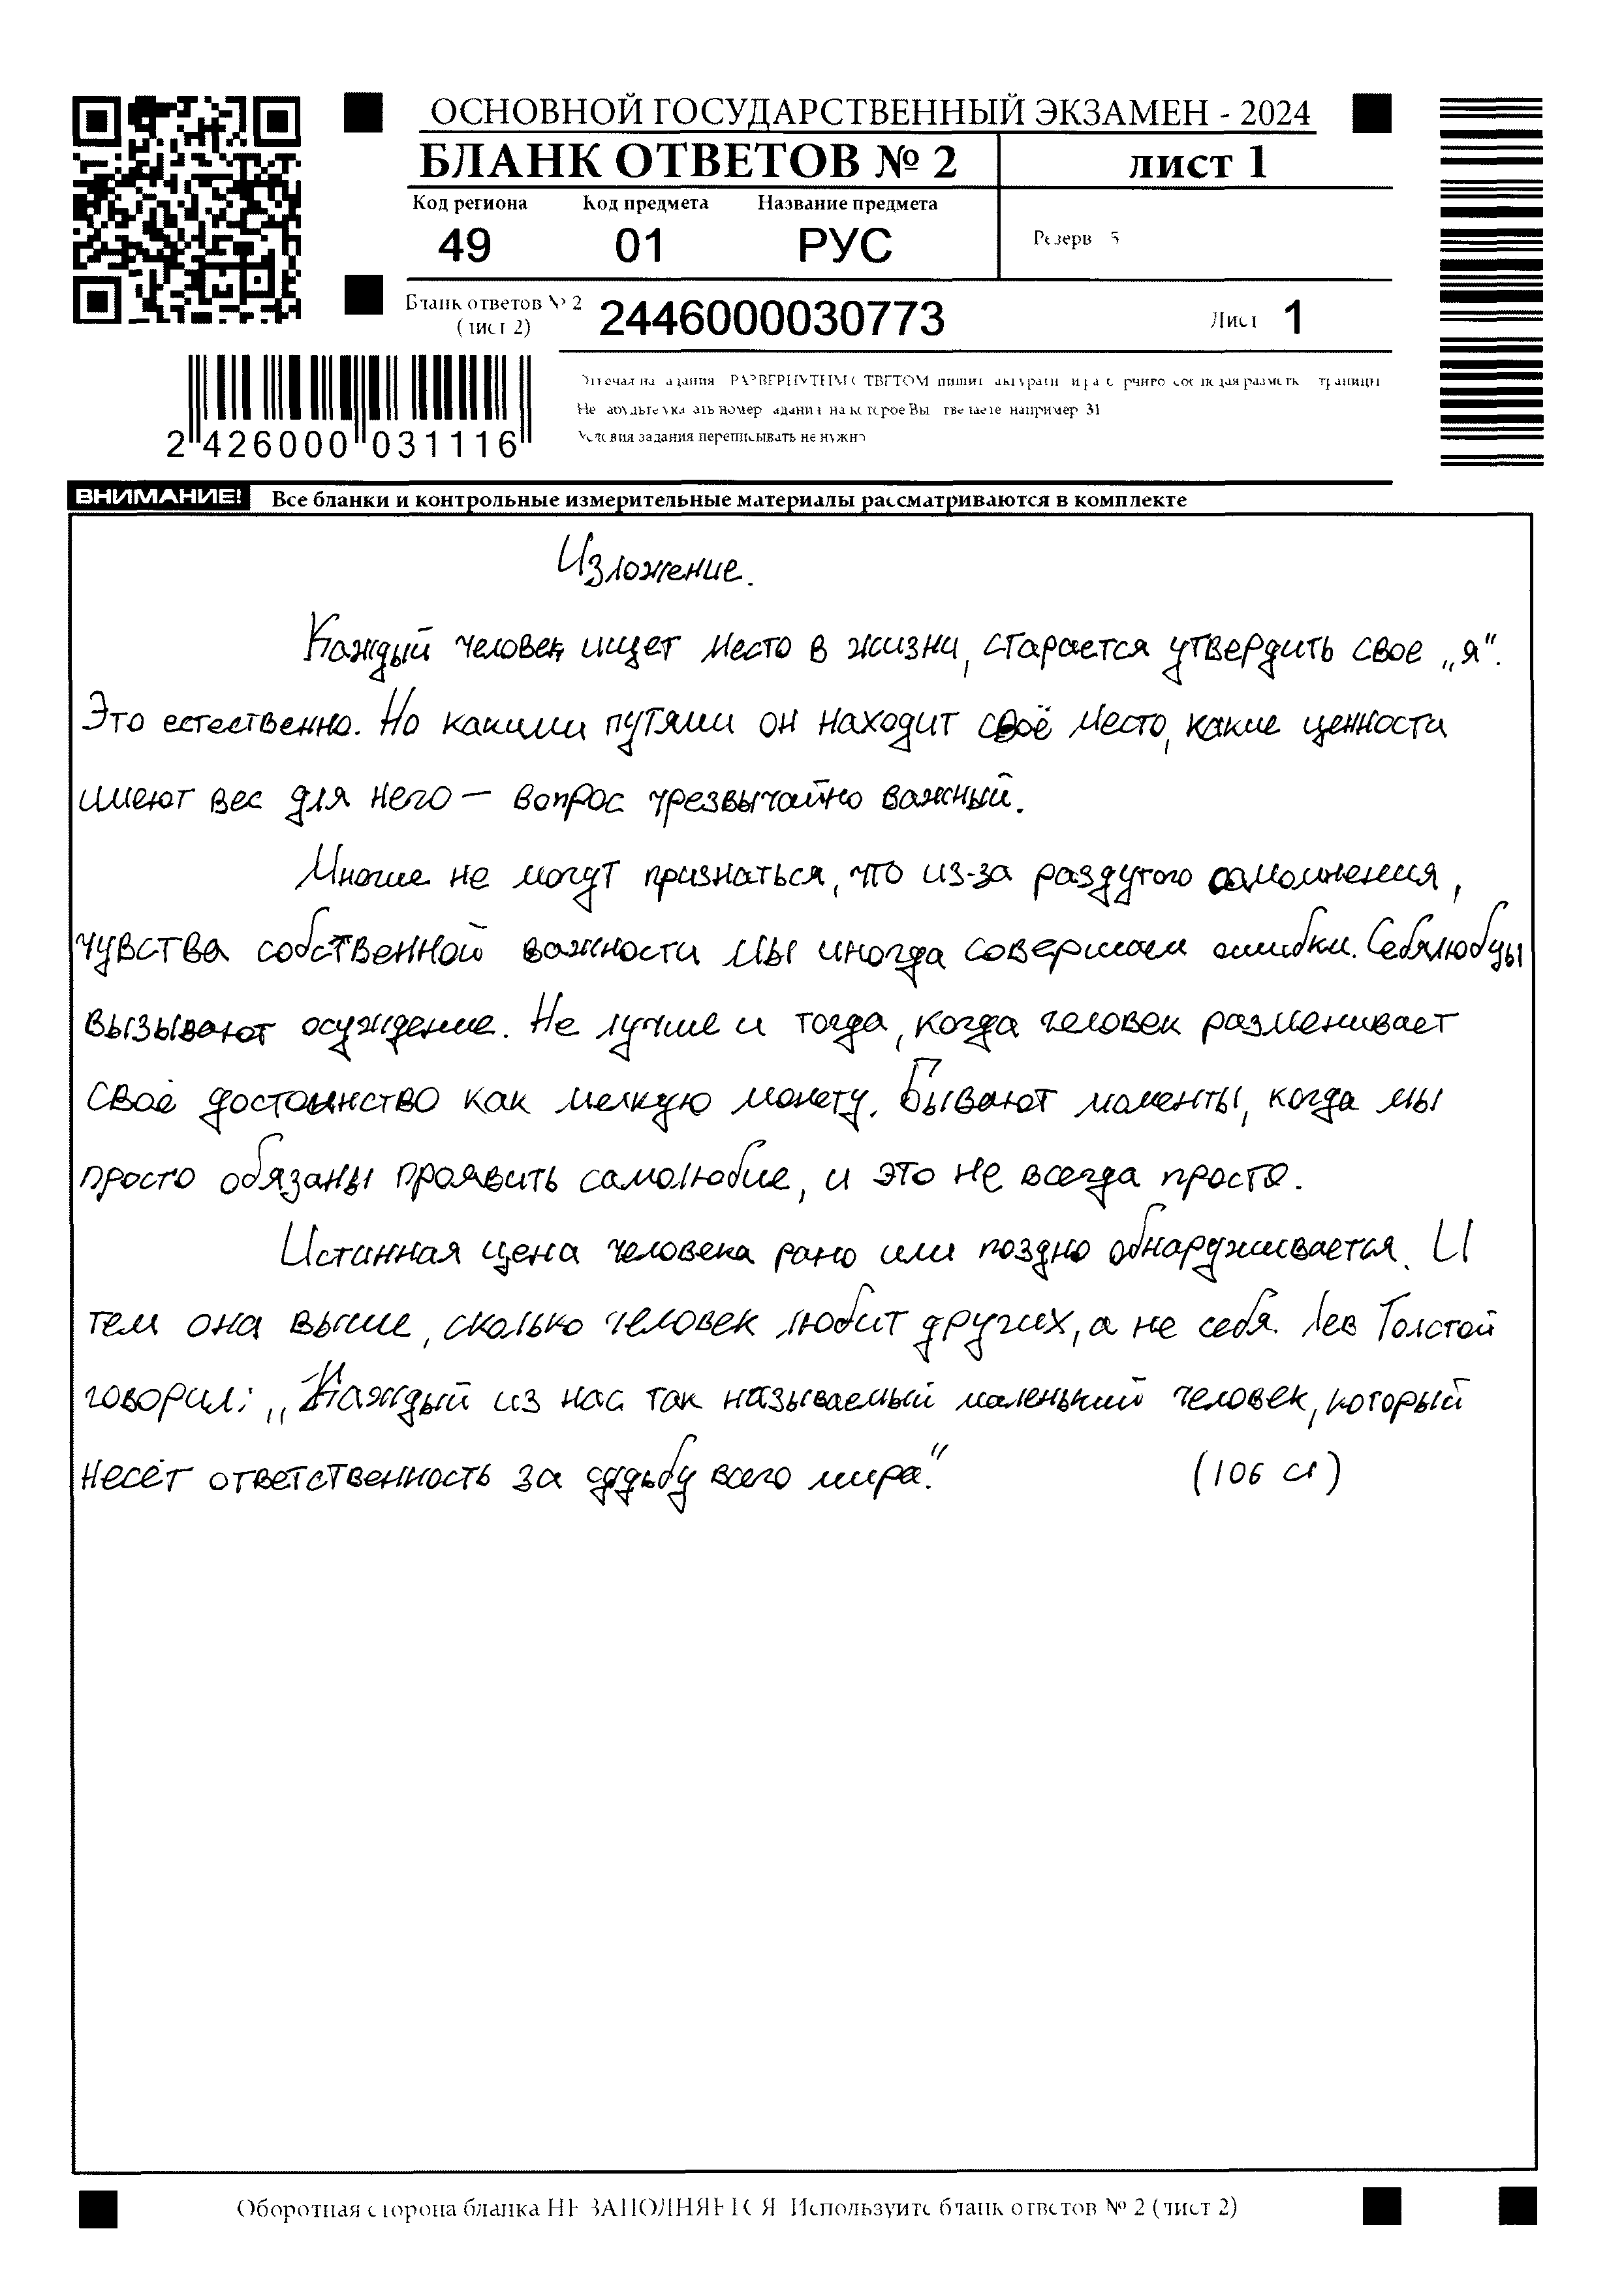 ОСНОВНОЙ ГОСУДАРСТВЕННЫЙ ЭКЗАМЕН - 2024
БЛАНК ОТВЕТОВ № 2 лист 1
Код региона Код предмета Название предмета
49 01 РУС Резерв 5
Бланк ответов № 2
(лист 2) 2446000030773 Лист 1
РАЗВЕРНУТЫМ ОТВЕТОМ
номер например 31
Условия задания переписывать не нужно
2 426000 031116
ВНИМАНИЕ! Все бланки и контрольные измерительные материалы рассматриваются в комплекте
Изложение.
Каждый человек ищет место в жизни, старается утвердить свое „я“.
Это естественно. Но какими путями он находит своё место, какие ценности
имеют вес для него — вопрос чрезвычайно важный.
Многие не могут признаться, что из-за раздутого самомнения,
чувства собственной важности мы иногда совершаем ошибки. Себялюбцы
вызывают осуждение. Не лучше и тогда, когда человек разменивает
своё достоинство как мелкую монету. Бывают моменты, когда мы
просто обязаны проявить самолюбие, и это не всегда просто.
Истинная цена человека рано или поздно обнаруживается. И
тем она выше, сколько человек любит других, а не себя. Лев Толстой
говорил: „Каждый из нас так называемый маленький человек, который
несёт ответственность за судьбу всего мира.“ (106 сл)
Оборотная сторона бланка НЕ ЗАПОЛНЯЕТСЯ Используйте бланк ответов № 2 (лист 2)